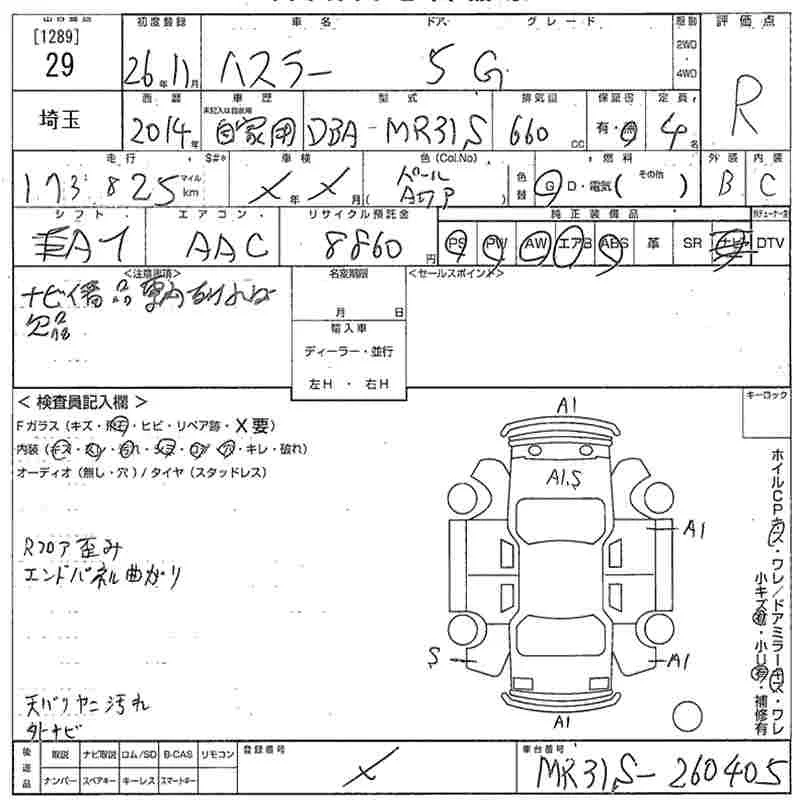 [1289]
29
埼玉
初度登録
26年11月
車名
ハスラー
ドア
5
グレード
G
駆動
2WD
・
4WD
評価点
R
西暦
2014年
車歴
未記入は自家用
自家用
型式
DBA-MR31S
排気量
660 cc
保証書
有・無
定員
4名
走行
173,825 マイル km
S#*
車検
×年×月
色(Col.No)
パール
( )
色替
燃料
G D・電気( その他 )
外装
B
内装
C
シフト
FAT
エアコン
AAC
リサイクル預託金
8860円
純正装備品
PS PW AW エアB ABS 革 SR ナビ DTV
<注意事項>
ナビ備品
欠品
名変期限
月 日
輸入車
ディーラー・並行
左H ・ 右H
<セールスポイント>
<検査員記入欄>
Fガラス(キズ・飛石・ヒビ・リペア跡・X要)
内装(キズ・スレ・汚れ・シミ・コゲ・穴・キレ・破れ)
オーディオ(無し・穴)/タイヤ(スタッドレス)
Rフロア歪み
エンドパネル曲がり
天バリヤニ汚れ
外ナビ
キーロック
A1
A1,S
A1
S
A1
A1
ホイルCPキズ・ワレ/ドアミラーキズ・ワレ
小キズ有・小U有・補修有
後送品
取説 ナビ取説 ロム/SD B-CAS リモコン
ナンバー スペアキー キーレス スマートキー
登録番号
×
車台番号
MR31S-260405